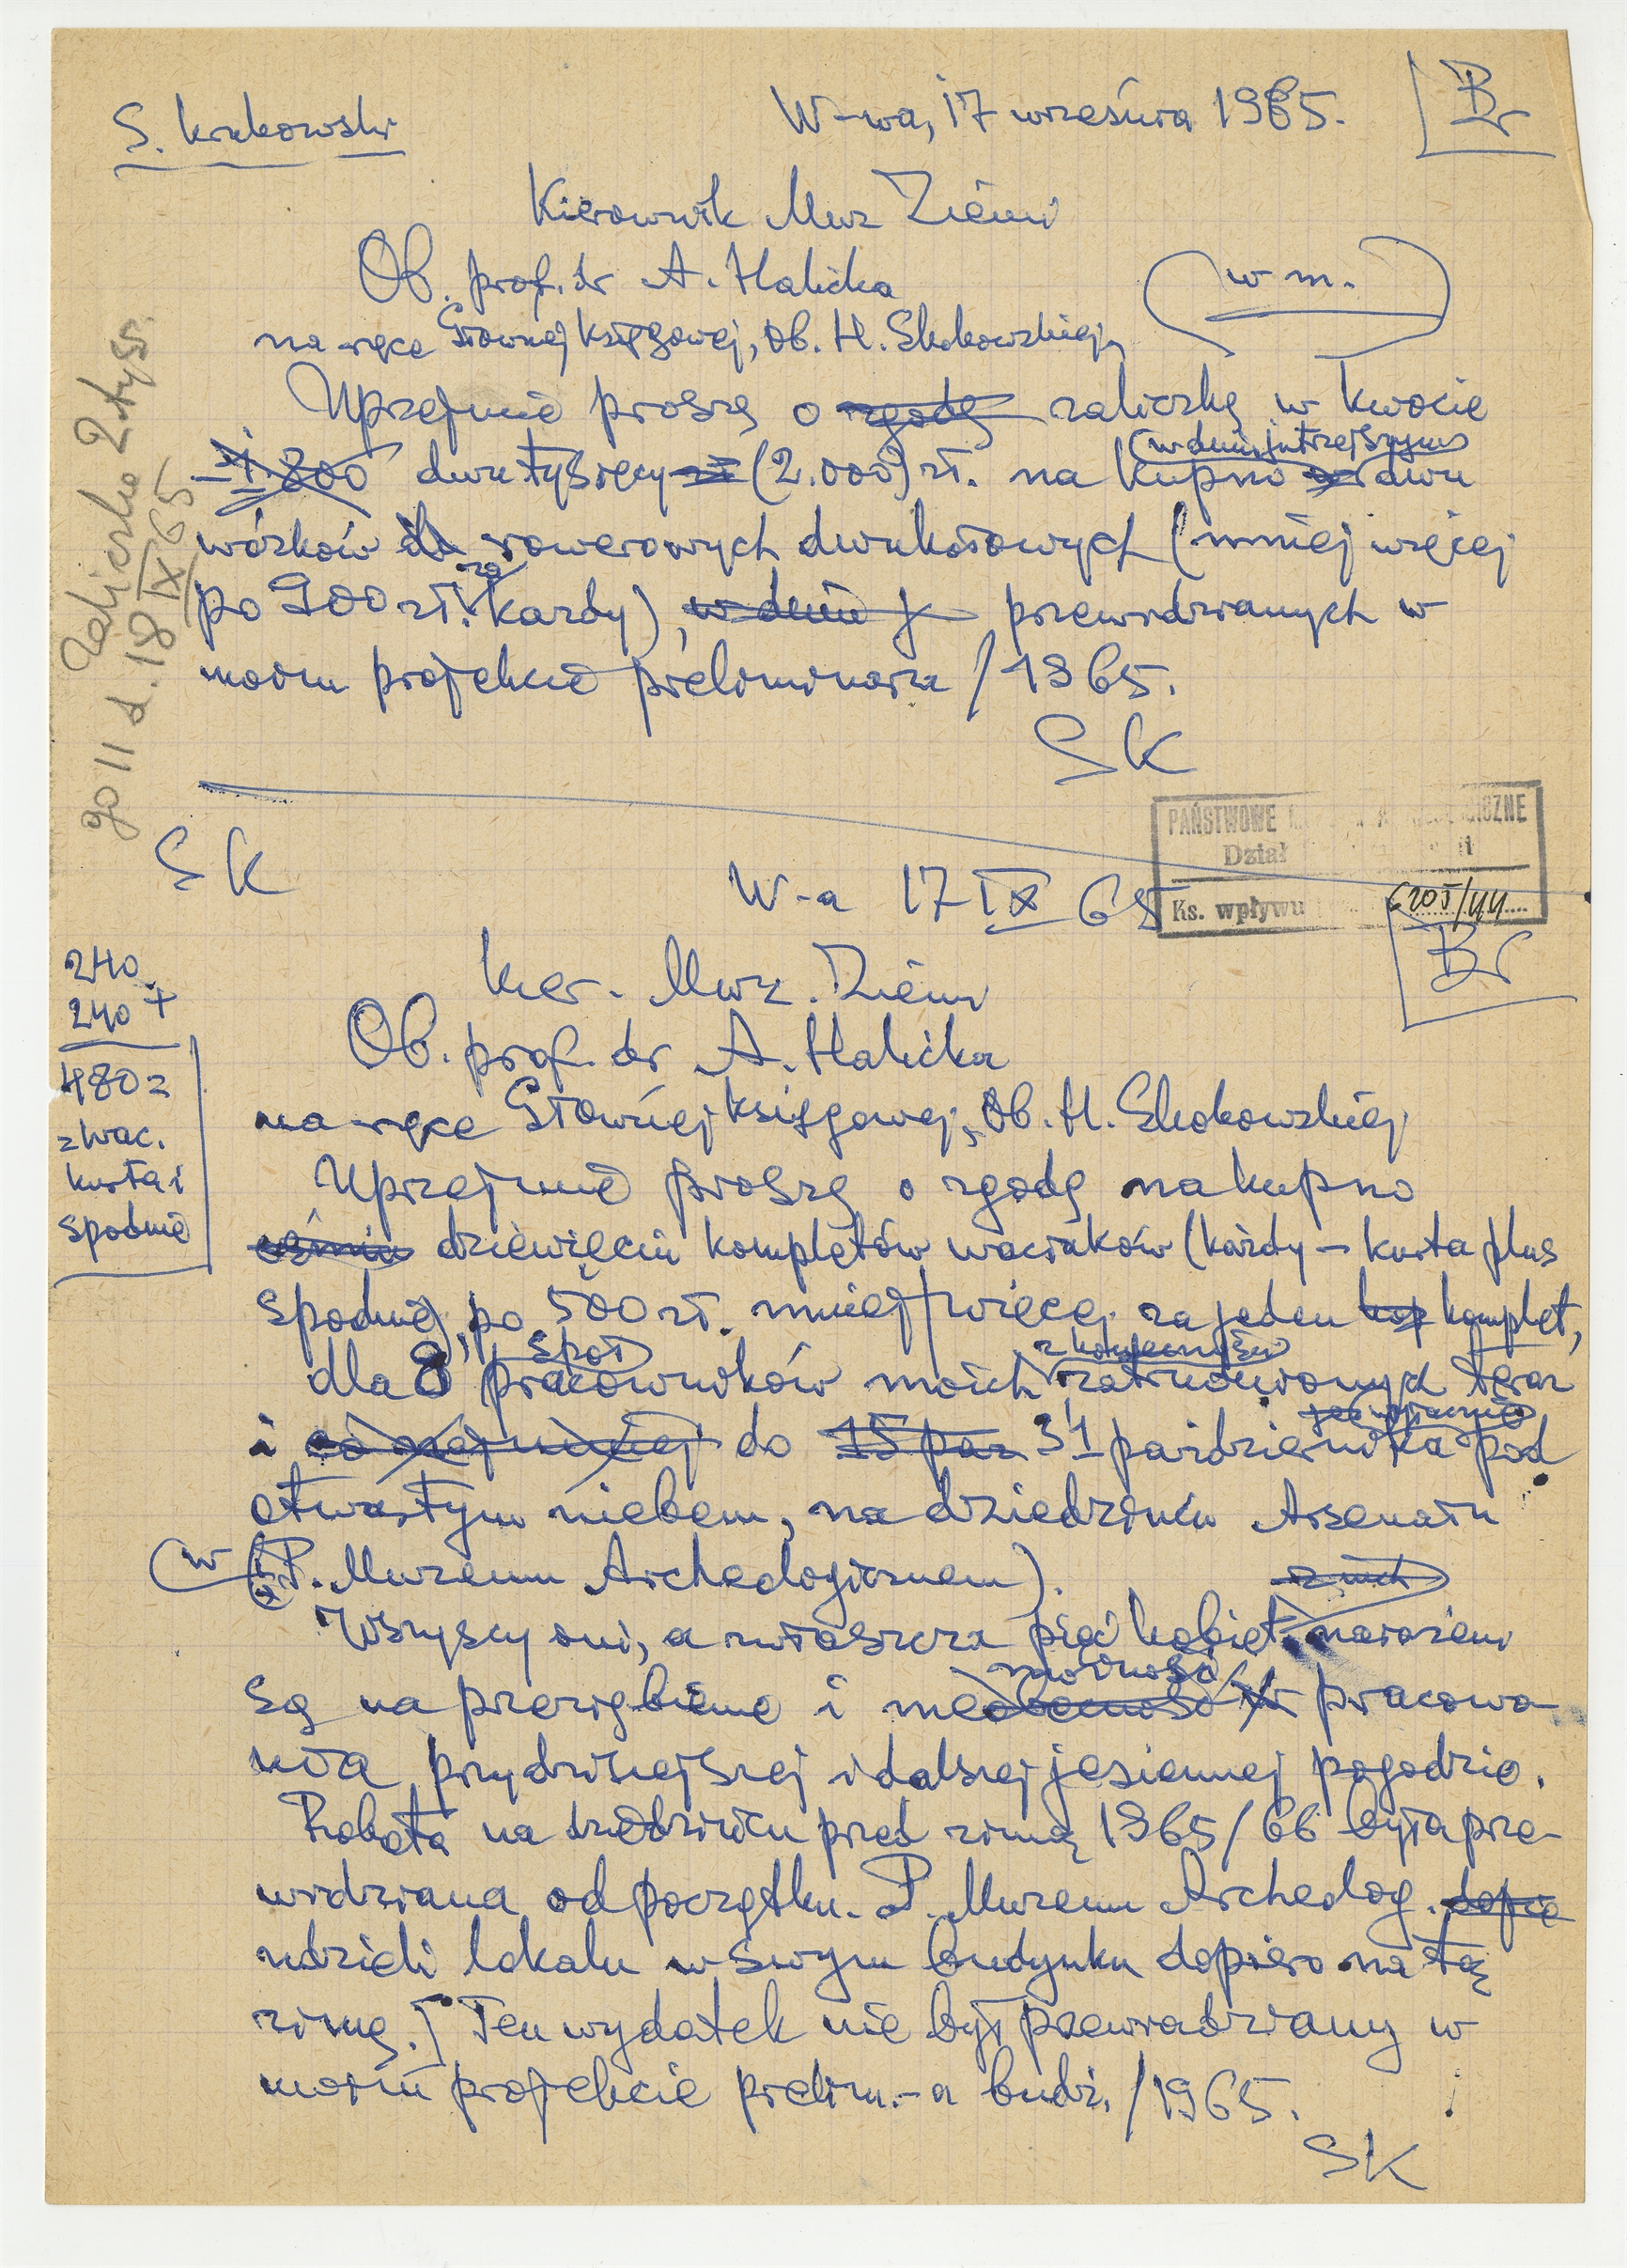 S. Krukowski
W-wa, 17 września 1965.
Br
Kierownik Muz Ziemi
Ob. prof. dr A. Halicka
(w m.)
na ręce Głównej Księgowej, Ob. H. Skokowskiej,
Uprzejmie proszę o zgodę zaliczkę w kwocie
1.800 dwu tysięcy zł (2.000) zł. na kupno (w dniu jutrzejszym) dwu
wózków do rowerowych dwukołowych (mniej więcej
po 900 zł. za każdy), w dniu j przewidzianych w
moim projekcie preliminarza /1965.
SK
Zaliczka 2 tyś.
go 11 d. 18 IX 65
SK
PAŃSTWOWE M ICZNE
Dział
Ks. wpływu 6205/44
W-a 17 IX 65
Br
Kier. Muz. Ziemi
Ob. prof. dr A. Halicka
na ręce Głównej Księgowej, Ob. H. Skokowskiej
Uprzejmie proszę o zgodę na kupno
ośmiu dziewięciu kompletów waciaków (każdy – kurta plus
spodnie), po 500 zł. mniej więcej za jeden kop komplet,
dla 8 współpracowników moich z konieczności zatrudnionych teraz
i co najmniej do 15 paź 31 października pod
otwartym niebem, na dziedzińcu Arsenału
(w P. Muzeum Archeologicznem).
Wszyscy oni, a zwłaszcza pięć kobiet z nich narażeni
są na przeziębienie i niemożność pracowa-
nia przy dzisiejszej i dalszej jesiennej pogodzie.
Robota na dziedzińcu przed zimą 1965/66 była prze-
widziana od początku. P. Muzeum Archeolog. dopie
udzieli lokalu w swym budynku dopiero na tę
zimę.] Ten wydatek nie był przewidziany w
moim projekcie prelim.-a budż. /1965.
SK
240
240 +
480 =
= wac.
kurta i
spodnie